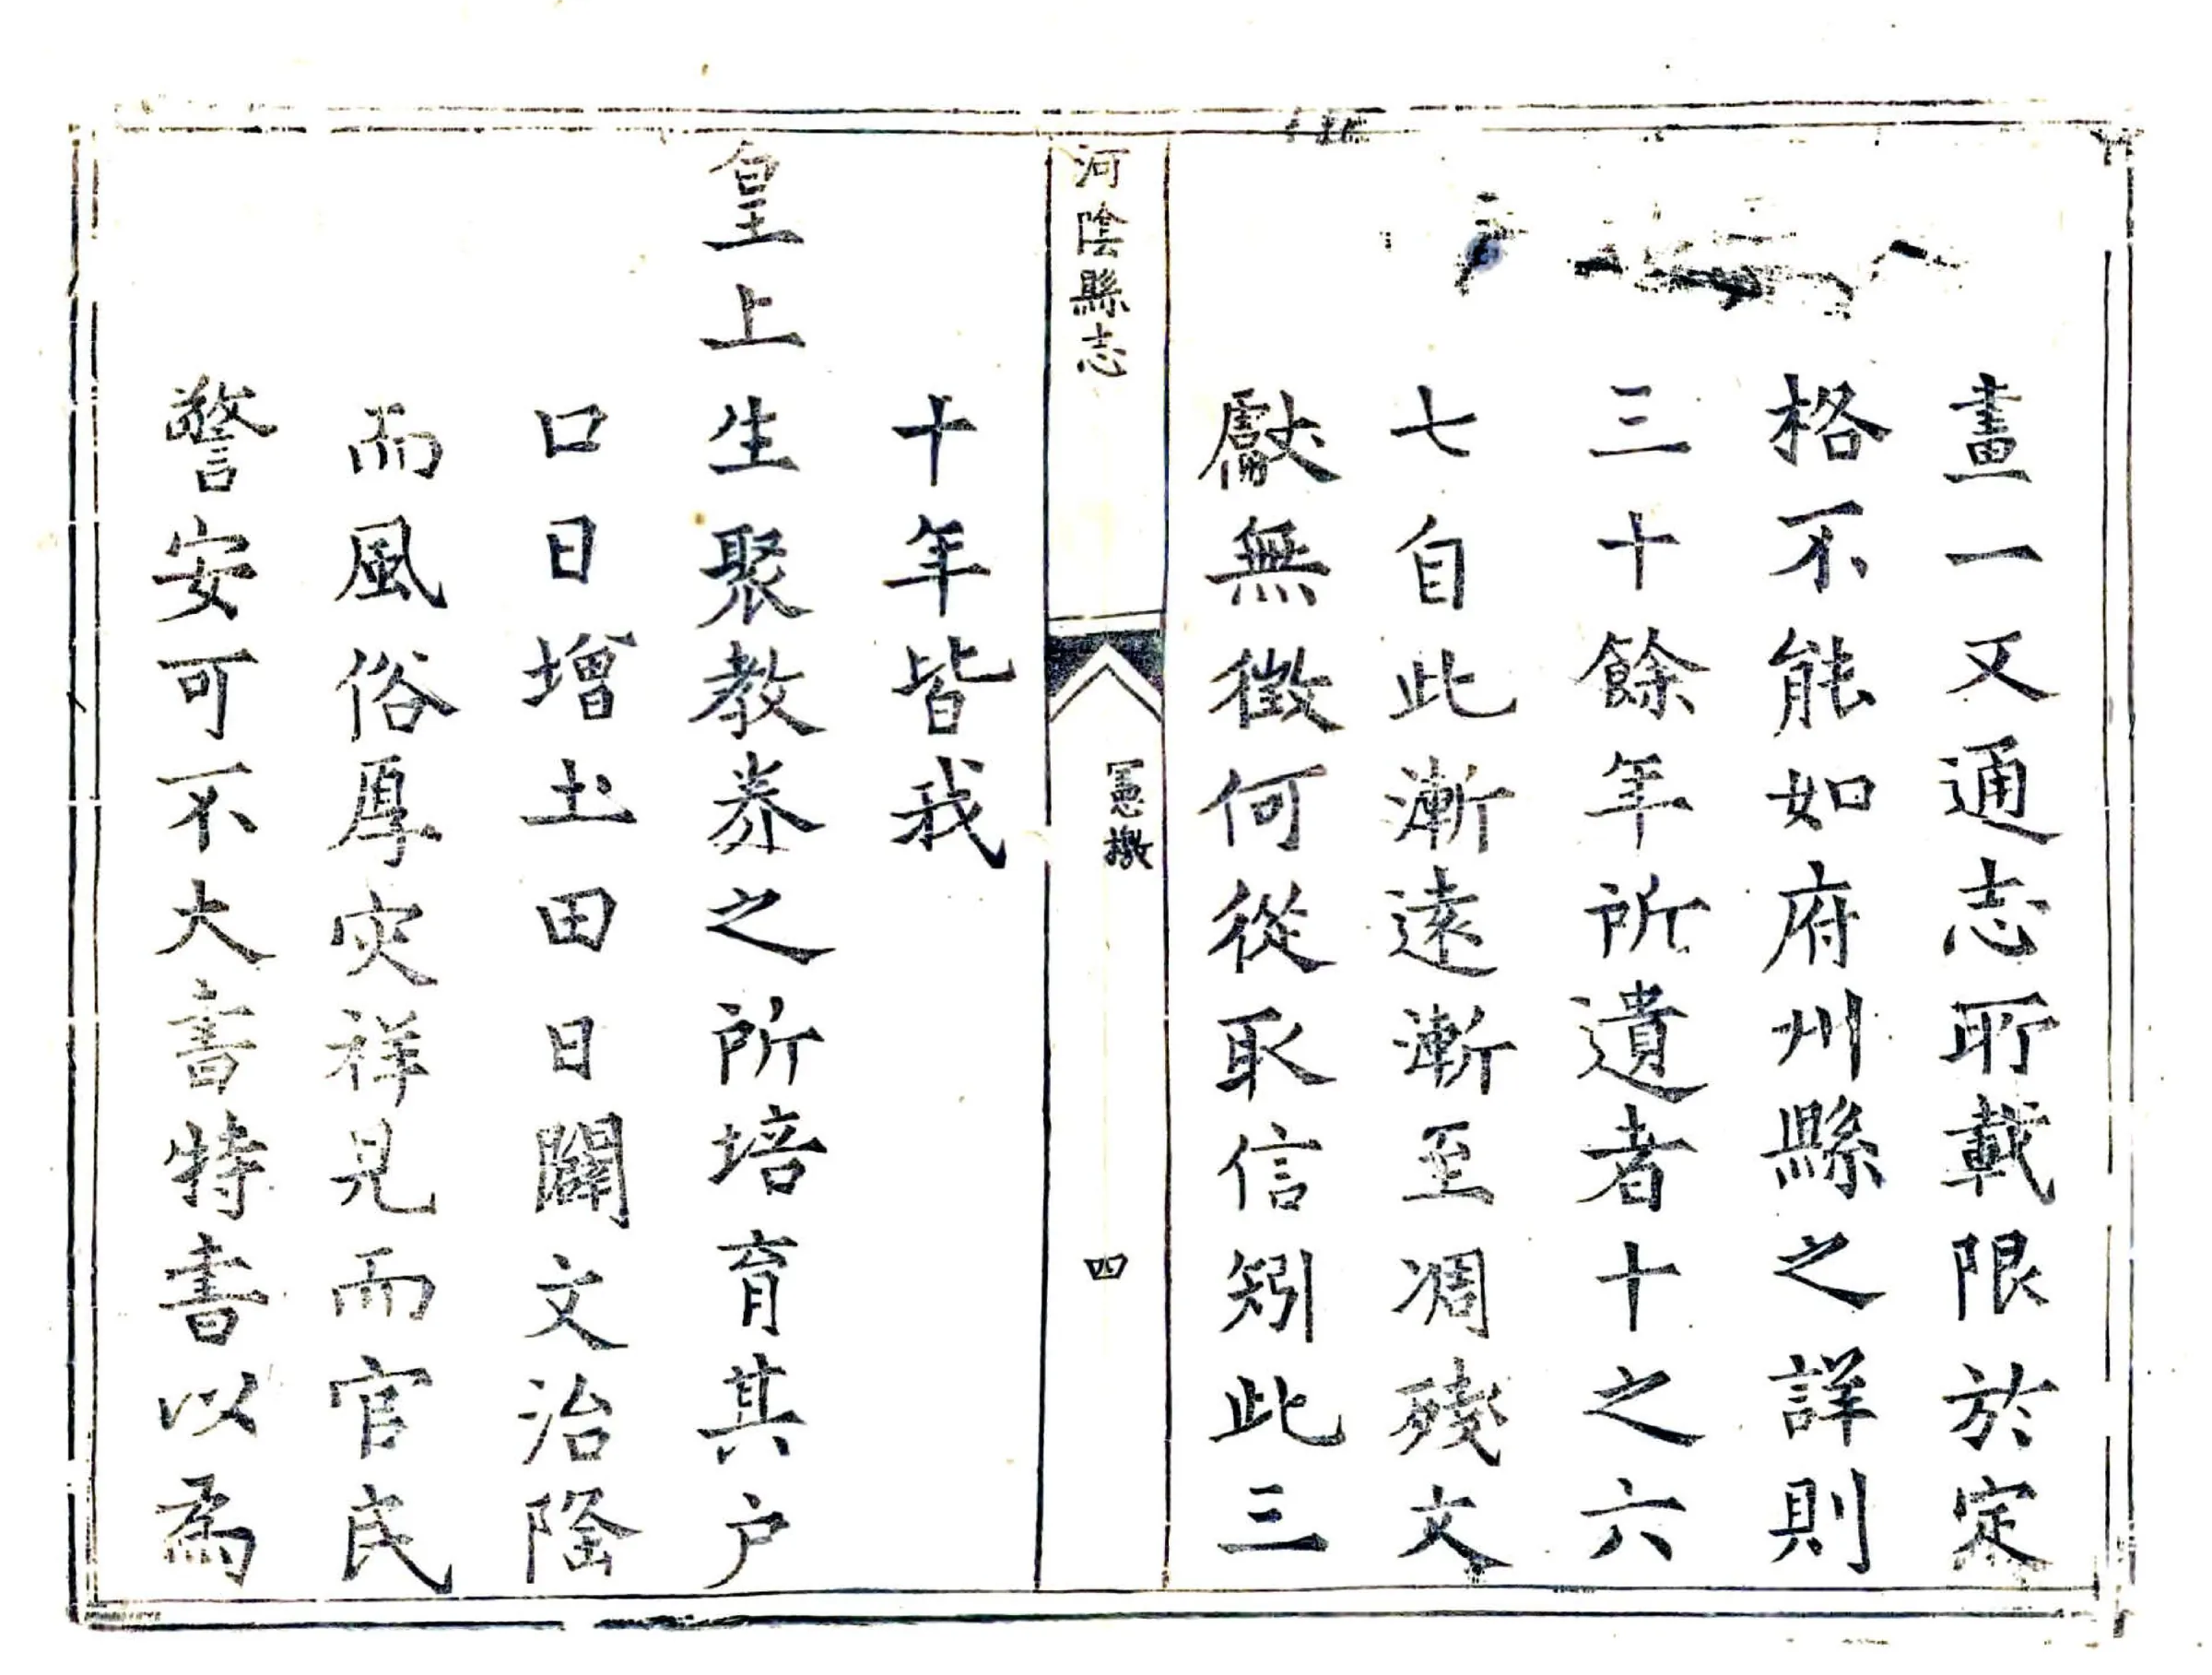 畫一又通志所載限於定
格不能如府州縣之詳則
三十餘年所遺者十之六
七自此漸遠漸至凋殘文
獻無徵何從取信矧此三
河陰縣志
憲檄
四
十年皆我
皇上生聚教养之所培育其户
口日增土田日闢文治隆
而風俗厚灾祥見而官民
警安可不大書特書以為